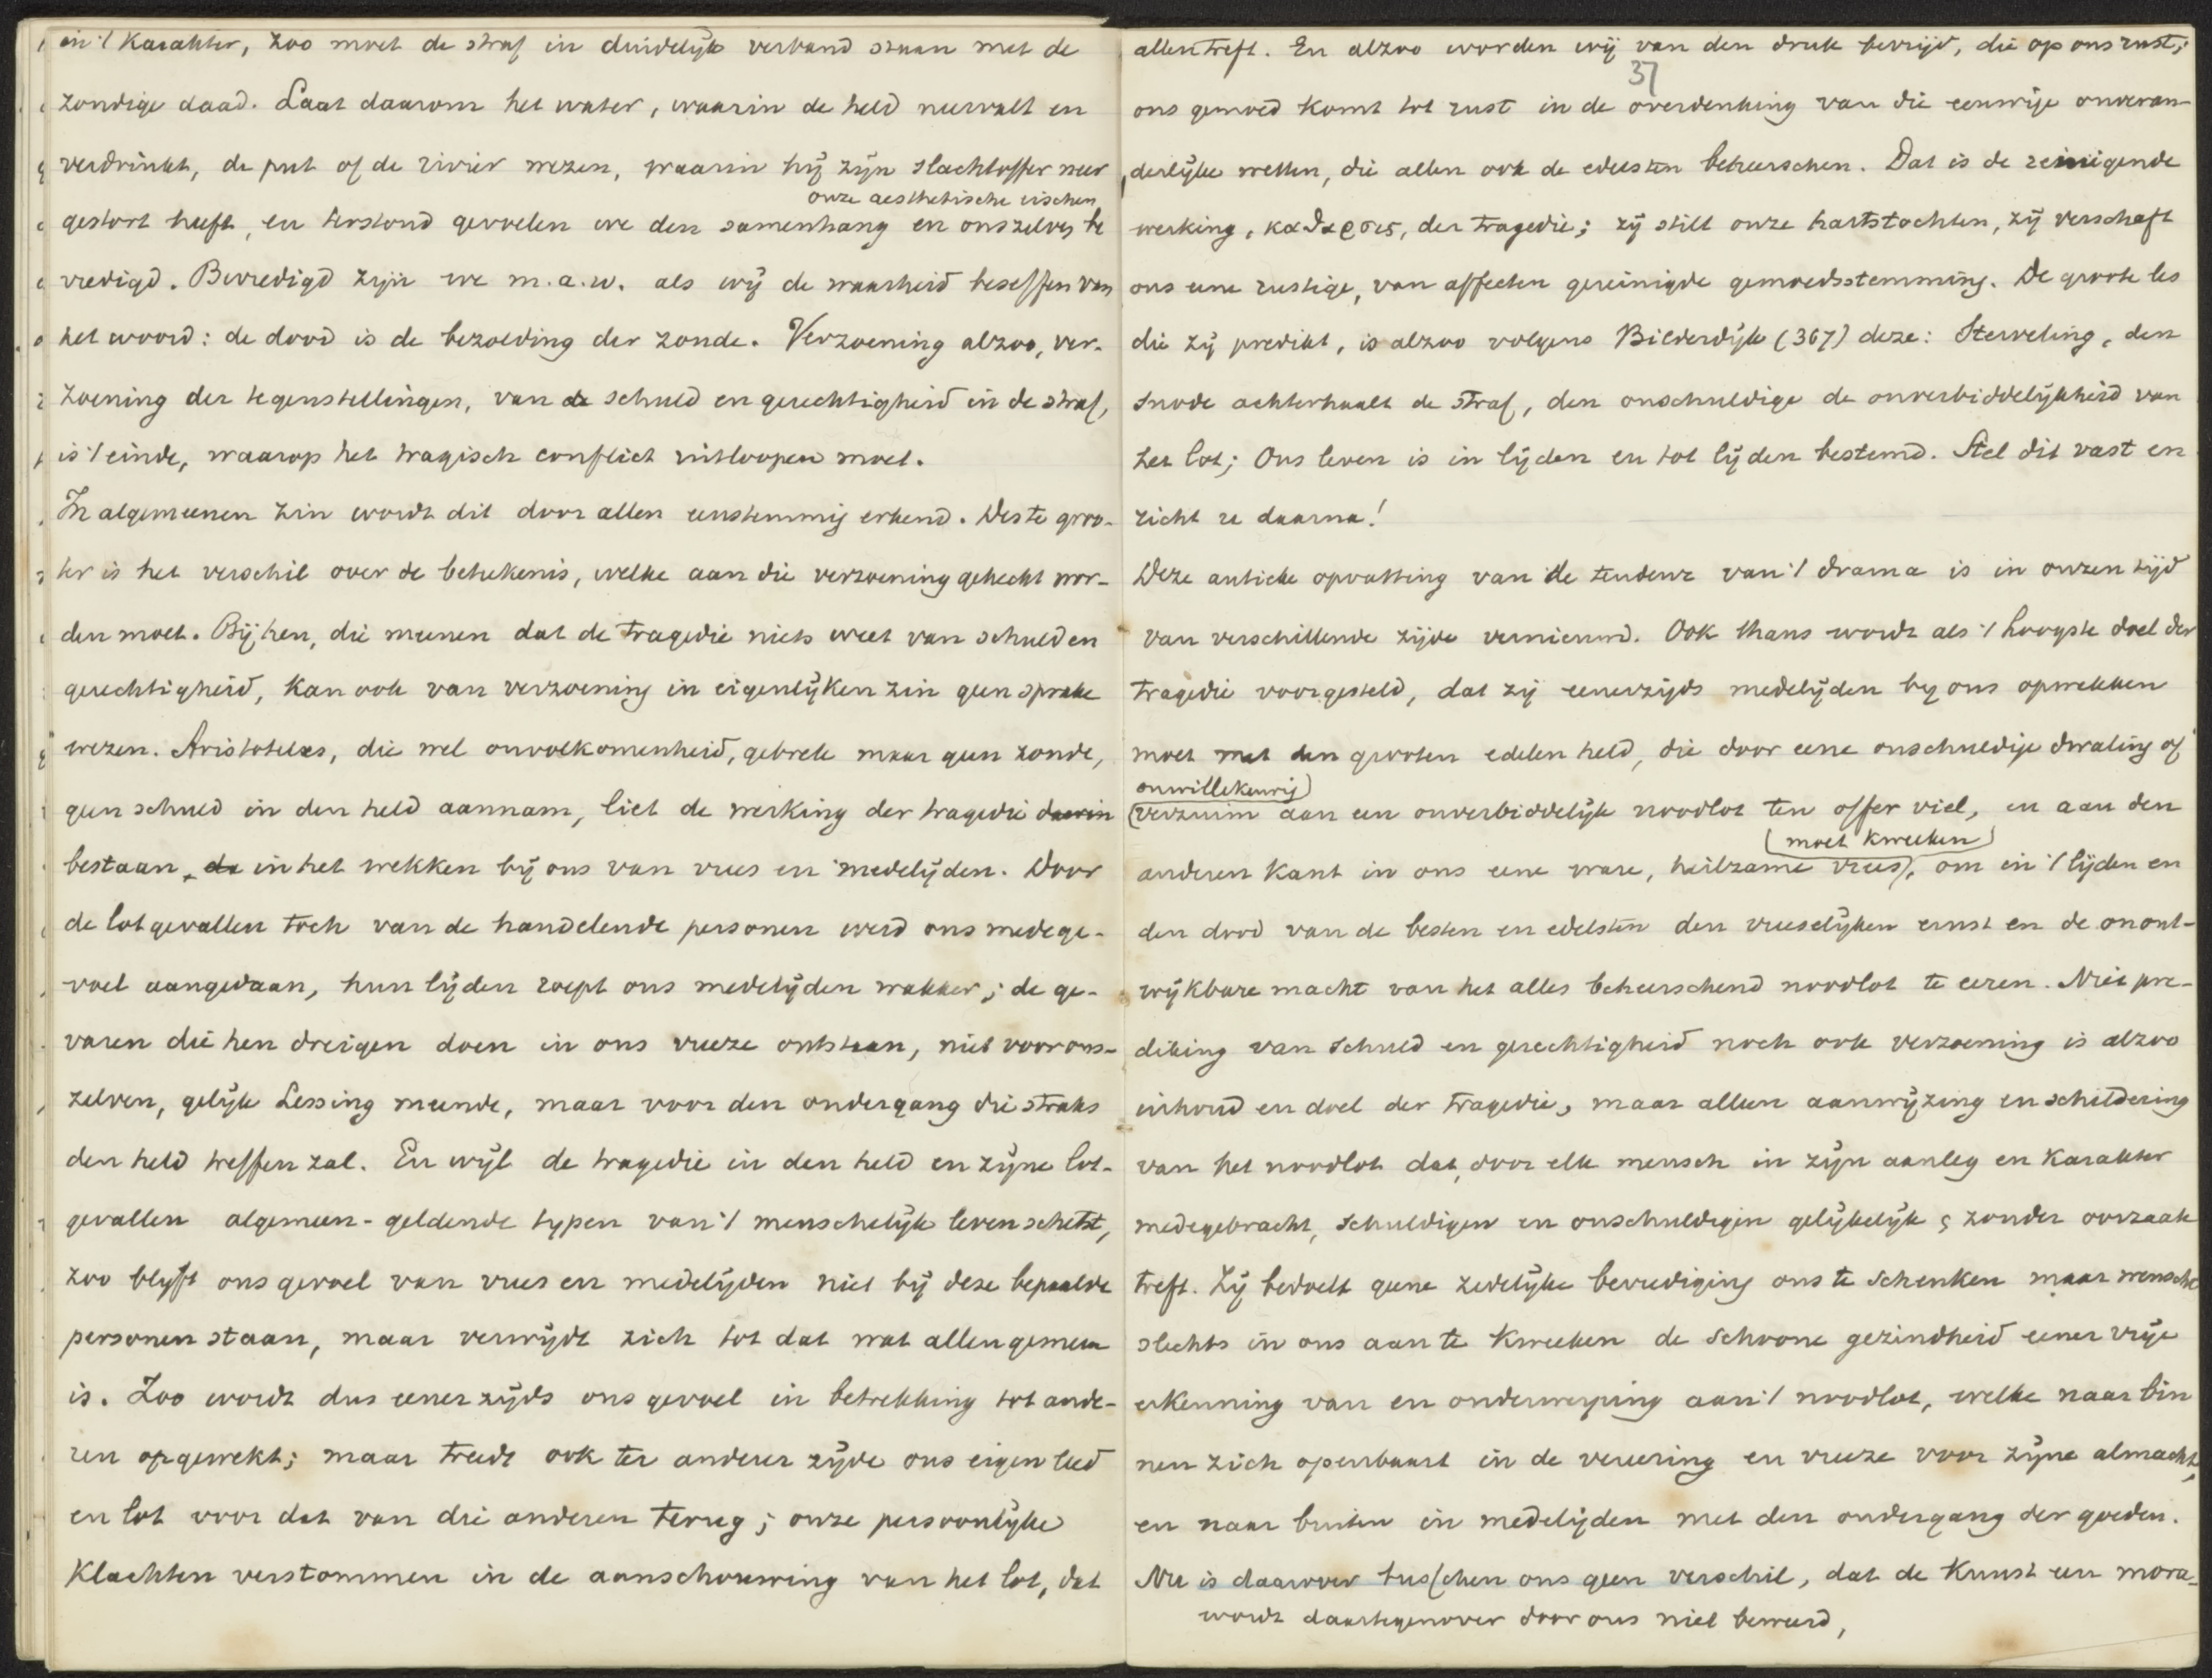 in 't karakter, zoo moet de straf in duidelijk verband staan met de
zondige daad. Laat daarom het water, waarin de held neervalt en
verdrinkt, de put of de rivier wezen, waarin hij zijn slachtoffer neer
onze aesthetische eischen
gestort heeft, en terstond gevoelen we den samenhang en ons zelven be
vredigd. Bevredigd zijn we m.a.w. als wij de waarheid beseffen van
het woord: de dood is de bezolding der zonde. Verzoening alzoo, ver-
zoening der tegenstellingen, van de schuld en gerechtigheid in de straf,
is 't einde, waarop het tragisch conflict uitloopen moet.
In algemeenen zin wordt dit door allen eenstemmig erkend. Des te groo-
ter is het verschil over de beteekenis, welke aan die verzoening gehecht wor-
den moet. Bij hen, die meenen dat de tragedie niets weet van schuld en
gerechtigheid, kan ook van verzoening in eigenlijken zin geen sprake
wezen. Aristoteles, die wel onvolkomenheid, gebrek maar geen zonde,
geen schuld in den held aannam, liet de werking der tragedie daarin
bestaan, da in het wekken bij ons van vrees en medelijden. Door
de lotgevallen toch van de handelende personen werd ons medege-
voel aangedaan, hun lijden roept ons medelijden wakker; de ge-
varen die hen dreigen doen in ons vreeze ontstaan, niet voor ons-
zelven, gelijk Lessing meende, maar voor den ondergang die straks
den held treffen zal. En wijl de tragedie in den held en zijne lot-
gevallen algemeen-geldende typen van 't menschelijk leven schetst,
zoo blijft ons gevoel van vrees en medelijden niet bij deze bepaalde
personen staan, maar verwijdt zich tot dat wat allen gemeen
is. Zoo wordt dus eener zijds ons gevoel in betrekking tot ande-
ren opgewekt; maar treedt ook ter anderer zijde ons eigen leed
en lot voor dat van die anderen terug; onze persoonlijke
klachten verstommen in de aanschouwing van het lot, dat
allen treft. En alzoo worden wij van den druk bevrijd, die op ons rust;
37
ons gemoed komt tot rust in de overdenking van die eeuwige onveran-
derlijke wetten, die allen ook de edelsten beheerschen. Dat is de reinigende
werking, καθαρσις, der tragedie; zij stilt onze hartstochten, zij verschaft
ons eene rustige, van affecten gereinigde gemoedsstemming. De groote les
die zij predikt, is alzoo volgens Bilderdijk (367) deze: Sterveling, den
snode achterhaalt de straf, den onschuldige de onverbiddelijkheid van
het lot; Ons leven is in lijden en tot lijden bestemd. Stel dit vast en
richt u daarna!
Deze antieke opvatting van de tendenz van 't drama is in onzen tijd
van verschillende zijde vernieuwd. Ook thans wordt als 't hoogste doel der
tragedie voorgesteld, dat zij eenerzijds medelijden by ons opwekken
moet met den grooten edelen held, die door eene onschuldige dwaling of
onwillekeurig
verzuim aan een onverbiddelijk noodlot ten offer viel, en aan den
moet kweeken
anderen kant in ons eene ware, heilzame vrees, om in 't lijden en
den dood van de besten en edelsten den vreeselijken ernst en de onont-
wijkbare macht van het alles beheerschend noodlot te eeren. Niet pre-
diking van schuld en gerechtigheid noch ook verzoening is alzoo
inhoud en doel der tragedie, maar alleen aanwijzing en schildering
van het noodlot dat, door elk mensch in zijn aanleg en karakter
medegebracht, schuldigen en onschuldigen gelijkelijk zonder oorzaak
treft. Zij bedoelt geene zedelijke bevrediging ons te schenken maar wenscht
slechts in ons aan te kweeken de schoone gezindheid eener vrije
erkenning van en onderwerping aan 't noodlot, welke naar bin
nen zich openbaart in de vereering en vreeze voor zijne almacht,
en naar buiten in medelijden met den ondergang der goeden.
Nu is daarover tusschen ons geen verschil, dat de kunst een mora-
wordt daartegenover door ons niet beweerd,